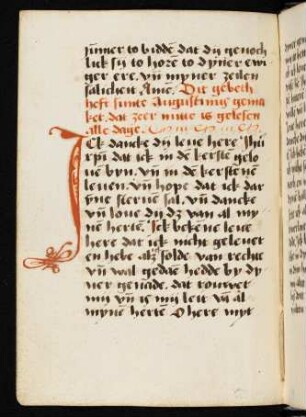 ymmer to biddē dat dy genoch
lick sy to hore to dyner ewi
ger ere. vn̄ myner zelen
salicheit Amē. Dit gebeth
heft sunte Augustinus gema
ket. dat zeer nutte is gelesen
alle dage.
Ick dancke dy leue here Jhū
xp̄i dat ick in dē kerstē gelo
uē byn. vn̄ in dē kerstenē
leuen. vn̄ hope dat ick dar
yne sterue sal. vn̄ dancke
vn̄ loue dy dz van al my
nē hertē. Ick bekēne leue
here dat ick nicht geleuet
en hebe alz solde van rechte
vn̄ wal gedāē hedde by dy
ner genade. dat rouwet
my vn̄ is my leit vā al
mynē hertē O here myt